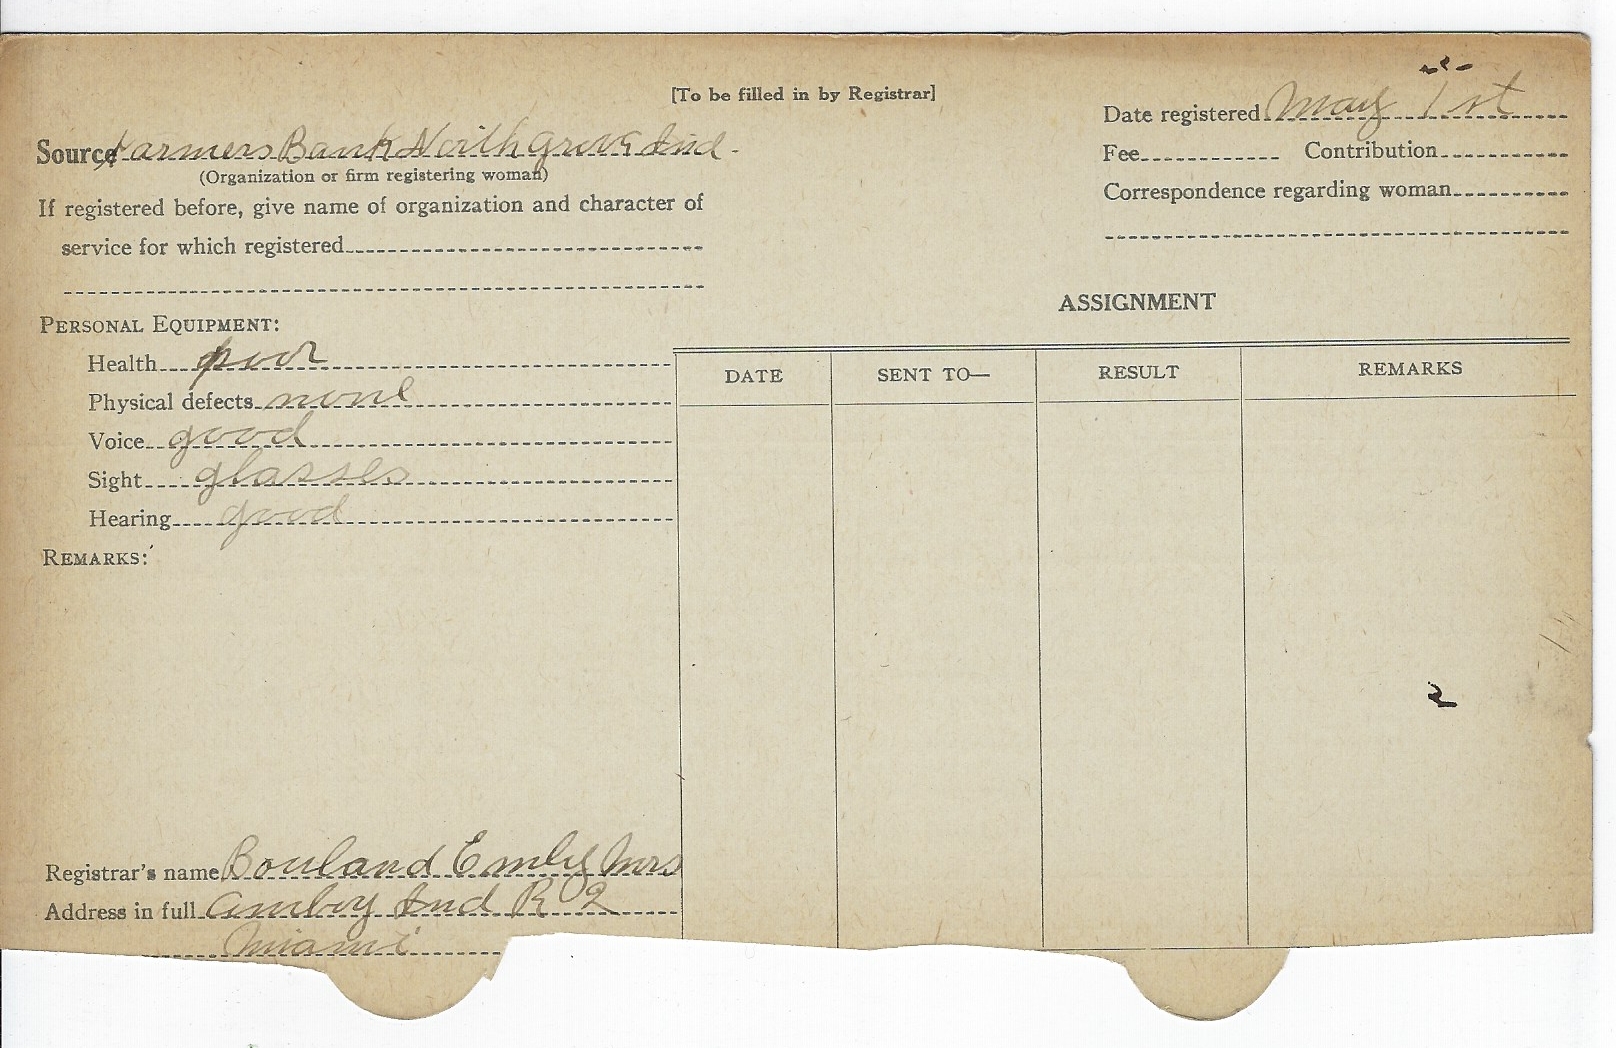 [To be filled in by Registrar]
Date registered May 1st
Source Farmers Bank North Grove Ind.
(Organization or firm registering woman)
Fee Contribution
Correspondence regarding woman
If registered before, give name of organization and character of
service for which registered
ASSIGNMENT
PERSONAL EQUIPMENT:
Health poor
Physical defects none
Voice good
Sight glasses
Hearing good
DATE SENT TO— RESULT REMARKS
REMARKS:
2
Registrar's name Bouland Emly Mrs
Address in full Amboy Ind R 2
Miami